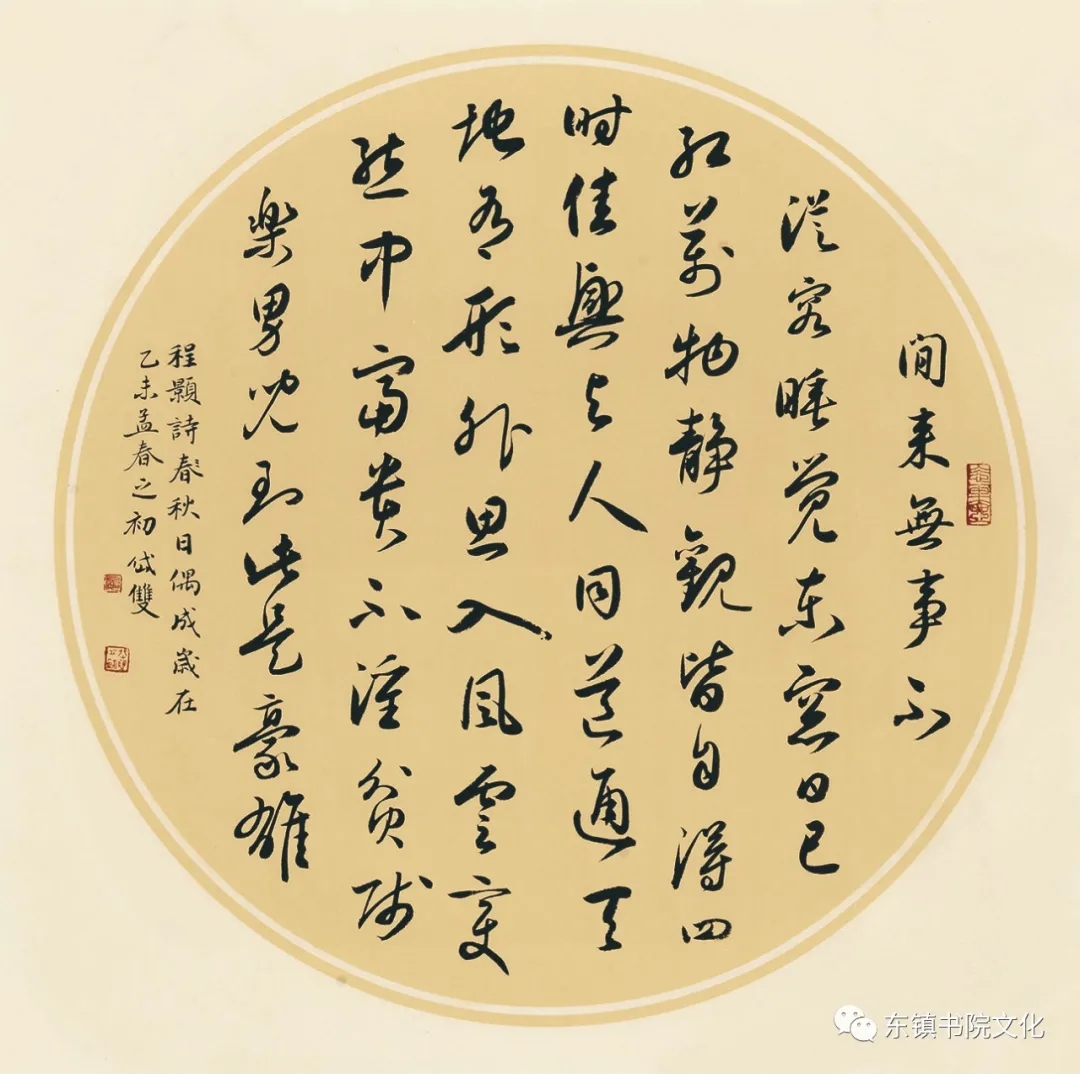 閒来無事不
從容睡觉东窓日已
红萬物静觀皆自得四
时佳興与人同道通天
地有形外思入风雲变
態中富贵不淫贫贱
樂男児到此是豪雄
程顥詩春秋日偶成歲在
乙未孟春之初岱雙
东镇书院文化